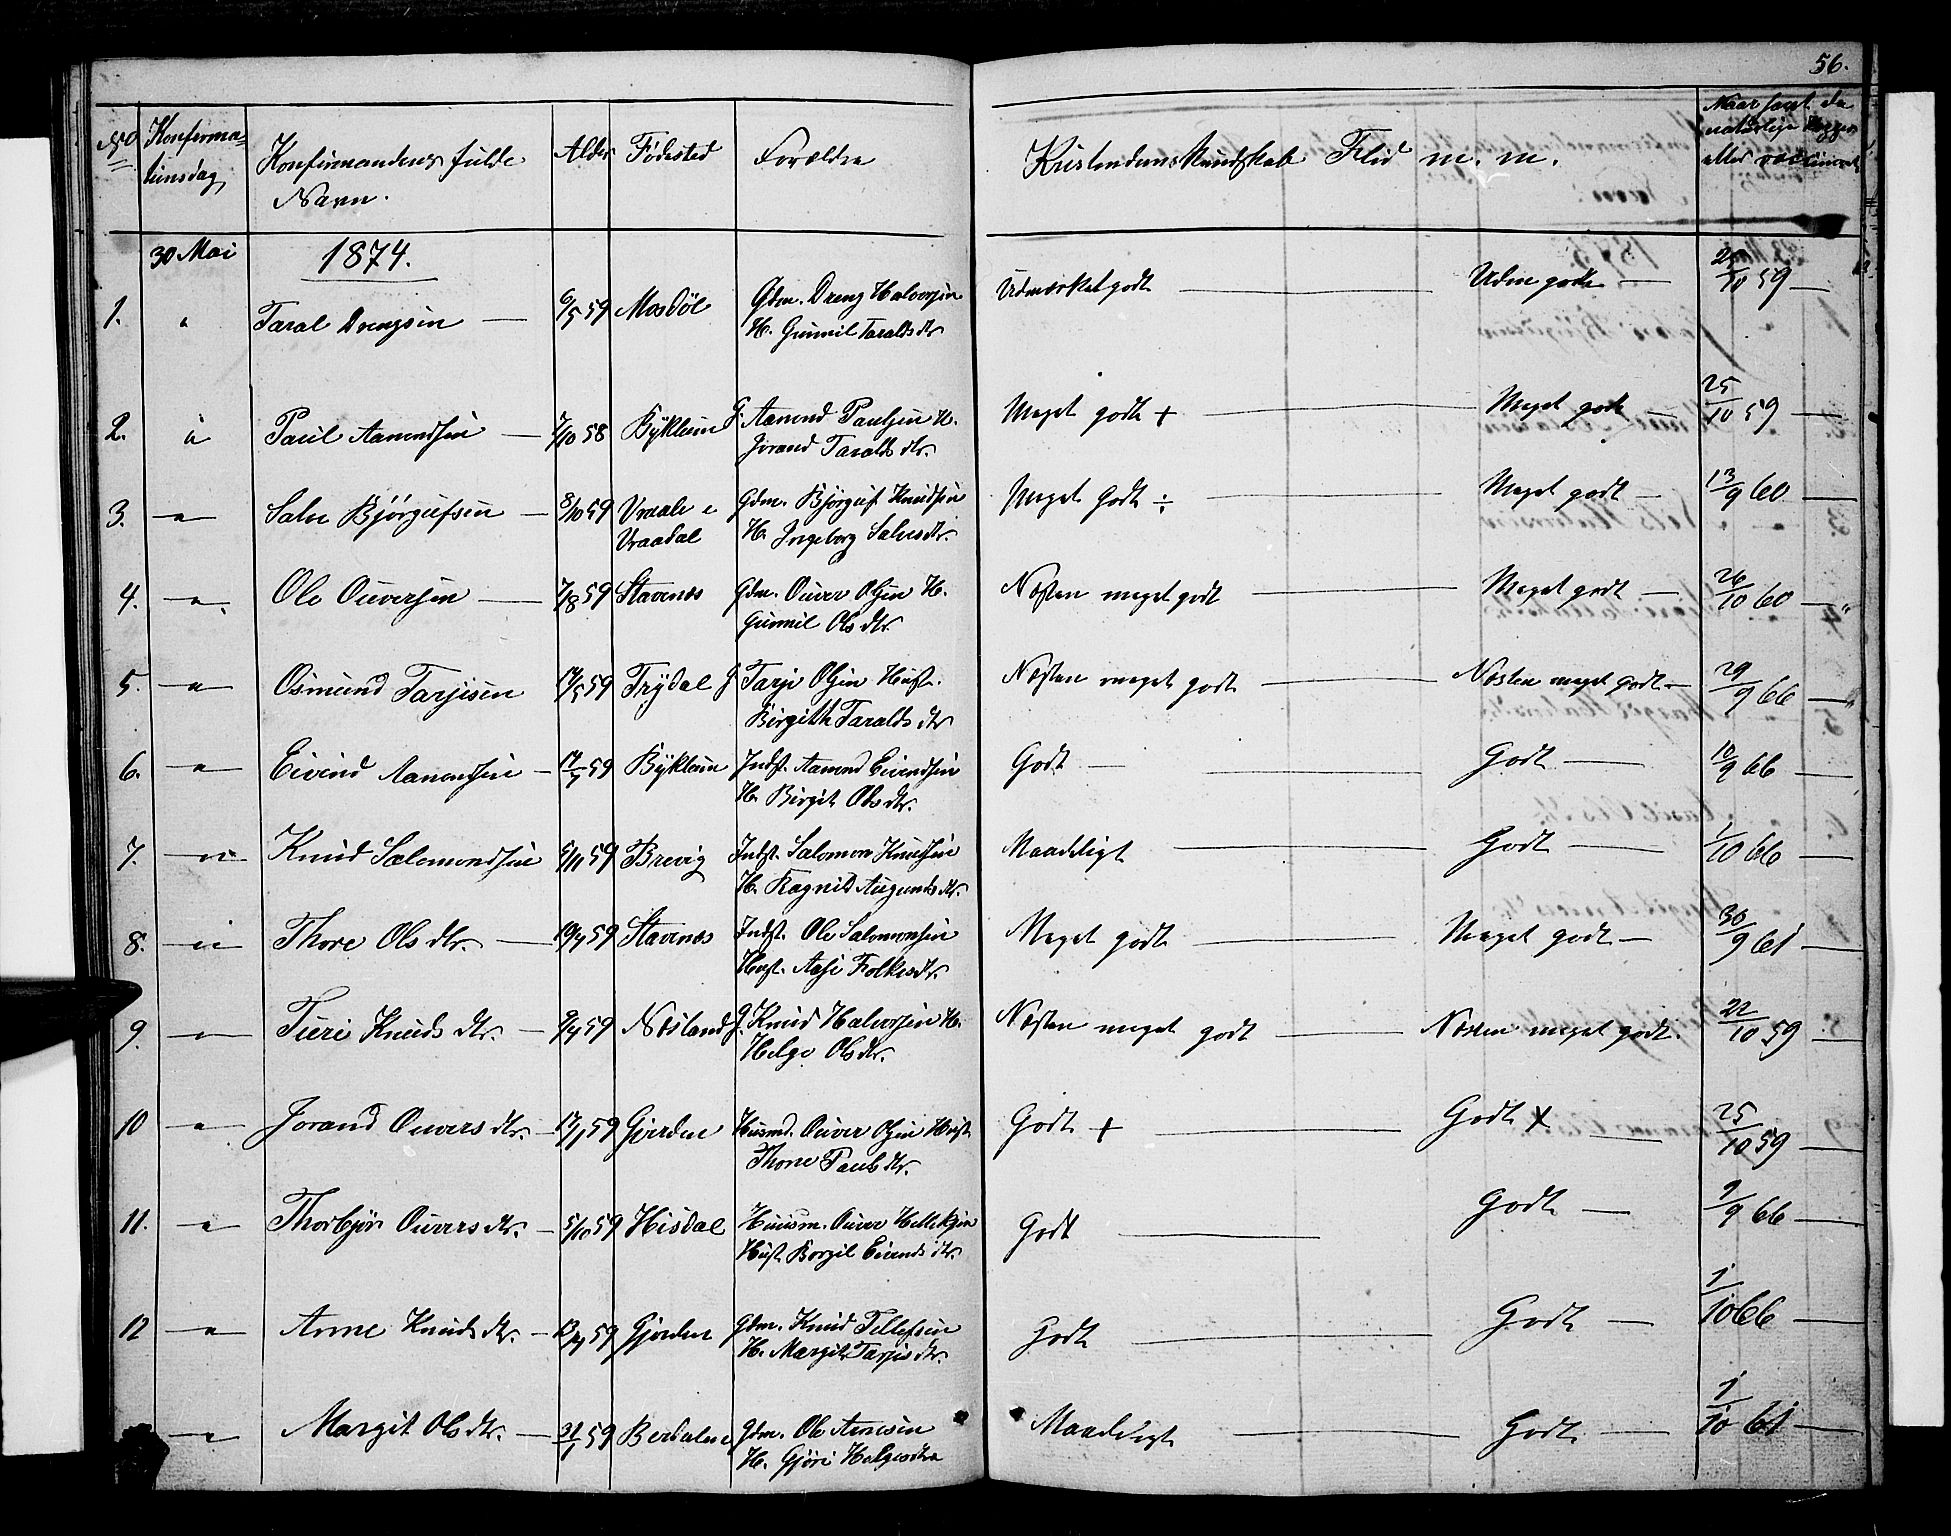 56.
No Konfirma-
tionsdag Konfirmandens fulde
Navn. Alder Fødested Forældre Kristendomskundskab Flid m. m. Naar havt de
naturlige Kopper
eller vaccineret
30 Mai 1874.
1. " Taral Drengsen — 6/5 59 Mosdöl Gdm. Dreng Halvorsen
H. Gunnil Taralds dtr Udmærket godt — Udm godt —
10 59 —
2. " Paul Aamondsen — /10 58 Bykleum G. Aamond Paulsen H.
Jorand Taralds dtr. Meget godt + — Meget godt — 25/10 59 —
3. — " — Salve Bjørgufsen — 8/10 59 Vraale i
Vraadal Gdm. Bjørguf Knudsen
H. Ingeborg Salves dtr. Meget Godt ÷ — Meget godt — 13/9 60 —
4. — " — Ole Ouversen — 7/8 59 Stavenæs Gdm. Ouver Olsen H.
Gunnil Ols dtr. Næsten meget godt — Meget godt — 26/10 60 —
5. — " — Osmund Tarjisen 14/5 59 Trydal G Tarje Olsen Hust.
Birgith Taralds dtr Næsten meget godt — Næsten meget godt — 29/9 66 —
6. — " — Eivind Aamondsen — 59 Bykleum Indst. Aamond Eivindsen
H. Birgit Ols dtr. Godt — Godt — 10/9 66 —
7. — " — Knud Salomondsen 5/11 59 Brevig Indst. Salomon Knudsen
H. Ragnild Augunds dtr. Maadeligt — Godt — 1/10 66 —
8. — " — Thore Ols dtr. — 59 Stavenæs Indst. Ole Salomonsen
Hust. Aase Folkes dtr. Meget godt — Meget godt — 30/9 61 —
9. — " — Turi Knuds dtr. — 9/4 59 Næsland G. Knud Halvorsen H.
Helge Ols dtr. Næsten meget godt — Næsten meget godt. 22/10 59 —
10 — " — Jorand Ouvers dtr. — 59 Gjerden Husmd. Ouver Olsen Hust
Thone Pauls dtr. Godt + — Godt + — 25/10 59 —
11. — " — Thorbjør Ouvers dtr. — 5/10 59 Hisdal Huusm. Ouver Helleksen
Hust. Borgil Eivends dtr. Godt — Godt — 9/9 66 —
12 — " — Anne Knuds dtr. — 59 Gjerden Gdm. Knud Tellefsen
H. Margit Tarjis dtr. Godt — Godt — 1/10 66 —
— " — Margit Ols dtr. — 31/1 59 Berdalen Gdm. Ole Arnesen
H. Gjøri Halges dtr Maadeligt — Godt — 1/10 61 —